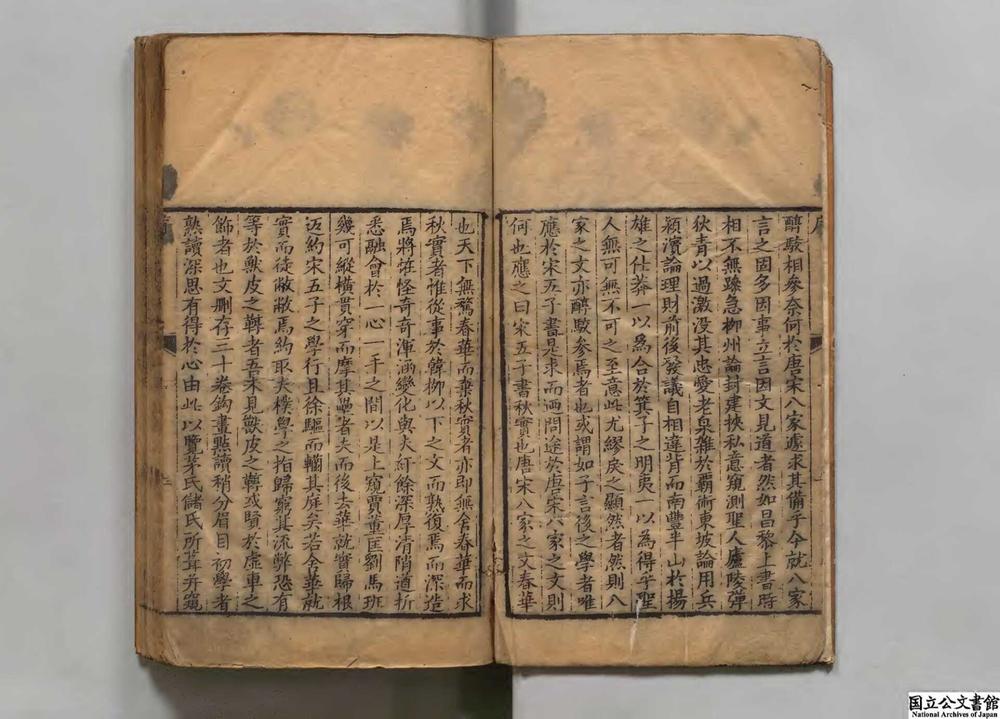 序
醇駁相參奈何於唐宋八家遽求其備乎今就八家
言之因多因事立言因文見道者然如昌黎上書時
相不無躁急柳州論封建挾私意窺測聖人廬陵彈
狄青以過激没其忠愛老泉雜於覇術東坡論用兵
潁濱論理財前後發議自相違背而南豐半山於揚
雄之仕莽一以為合於箕子之明夷一以為得乎聖
人無可無不可之至意此尤繆戾之顯然者然則八
家之文亦醇駁參焉者也或謂如子言後之學者唯
應於宋五子書是求而廼問途於唐宋八家之文則
何也應之曰宋五子書秋實也唐宋八家之文春華
也天下無騖春華而棄秋實者亦即無舍春華而求
秋實者惟從事於韓柳以下之文而熟復焉而深造
焉將怪怪奇奇渾涵變化與夫紆餘深厚清陗遒折
悉融會於一心一手之間以是上窺賈董匡劉馬班
幾可縱横貫穿而摩其壘者夫而後去華就實歸根
返約宋五子之學行且徐驅而轥其庭矣若舍華就
實而徒敝敝焉約取夫樸學之指歸窮其流弊恐有
等於獸皮之鞟者吾未見獸皮之鞟或賢於虛車之
飾者也文删存三十卷鈎畫㸃讀稍分眉目初學者
熟讀深思有得於心由此以覽茅氏儲氏所葺并窺
國立公文書館
National Archives of Japan